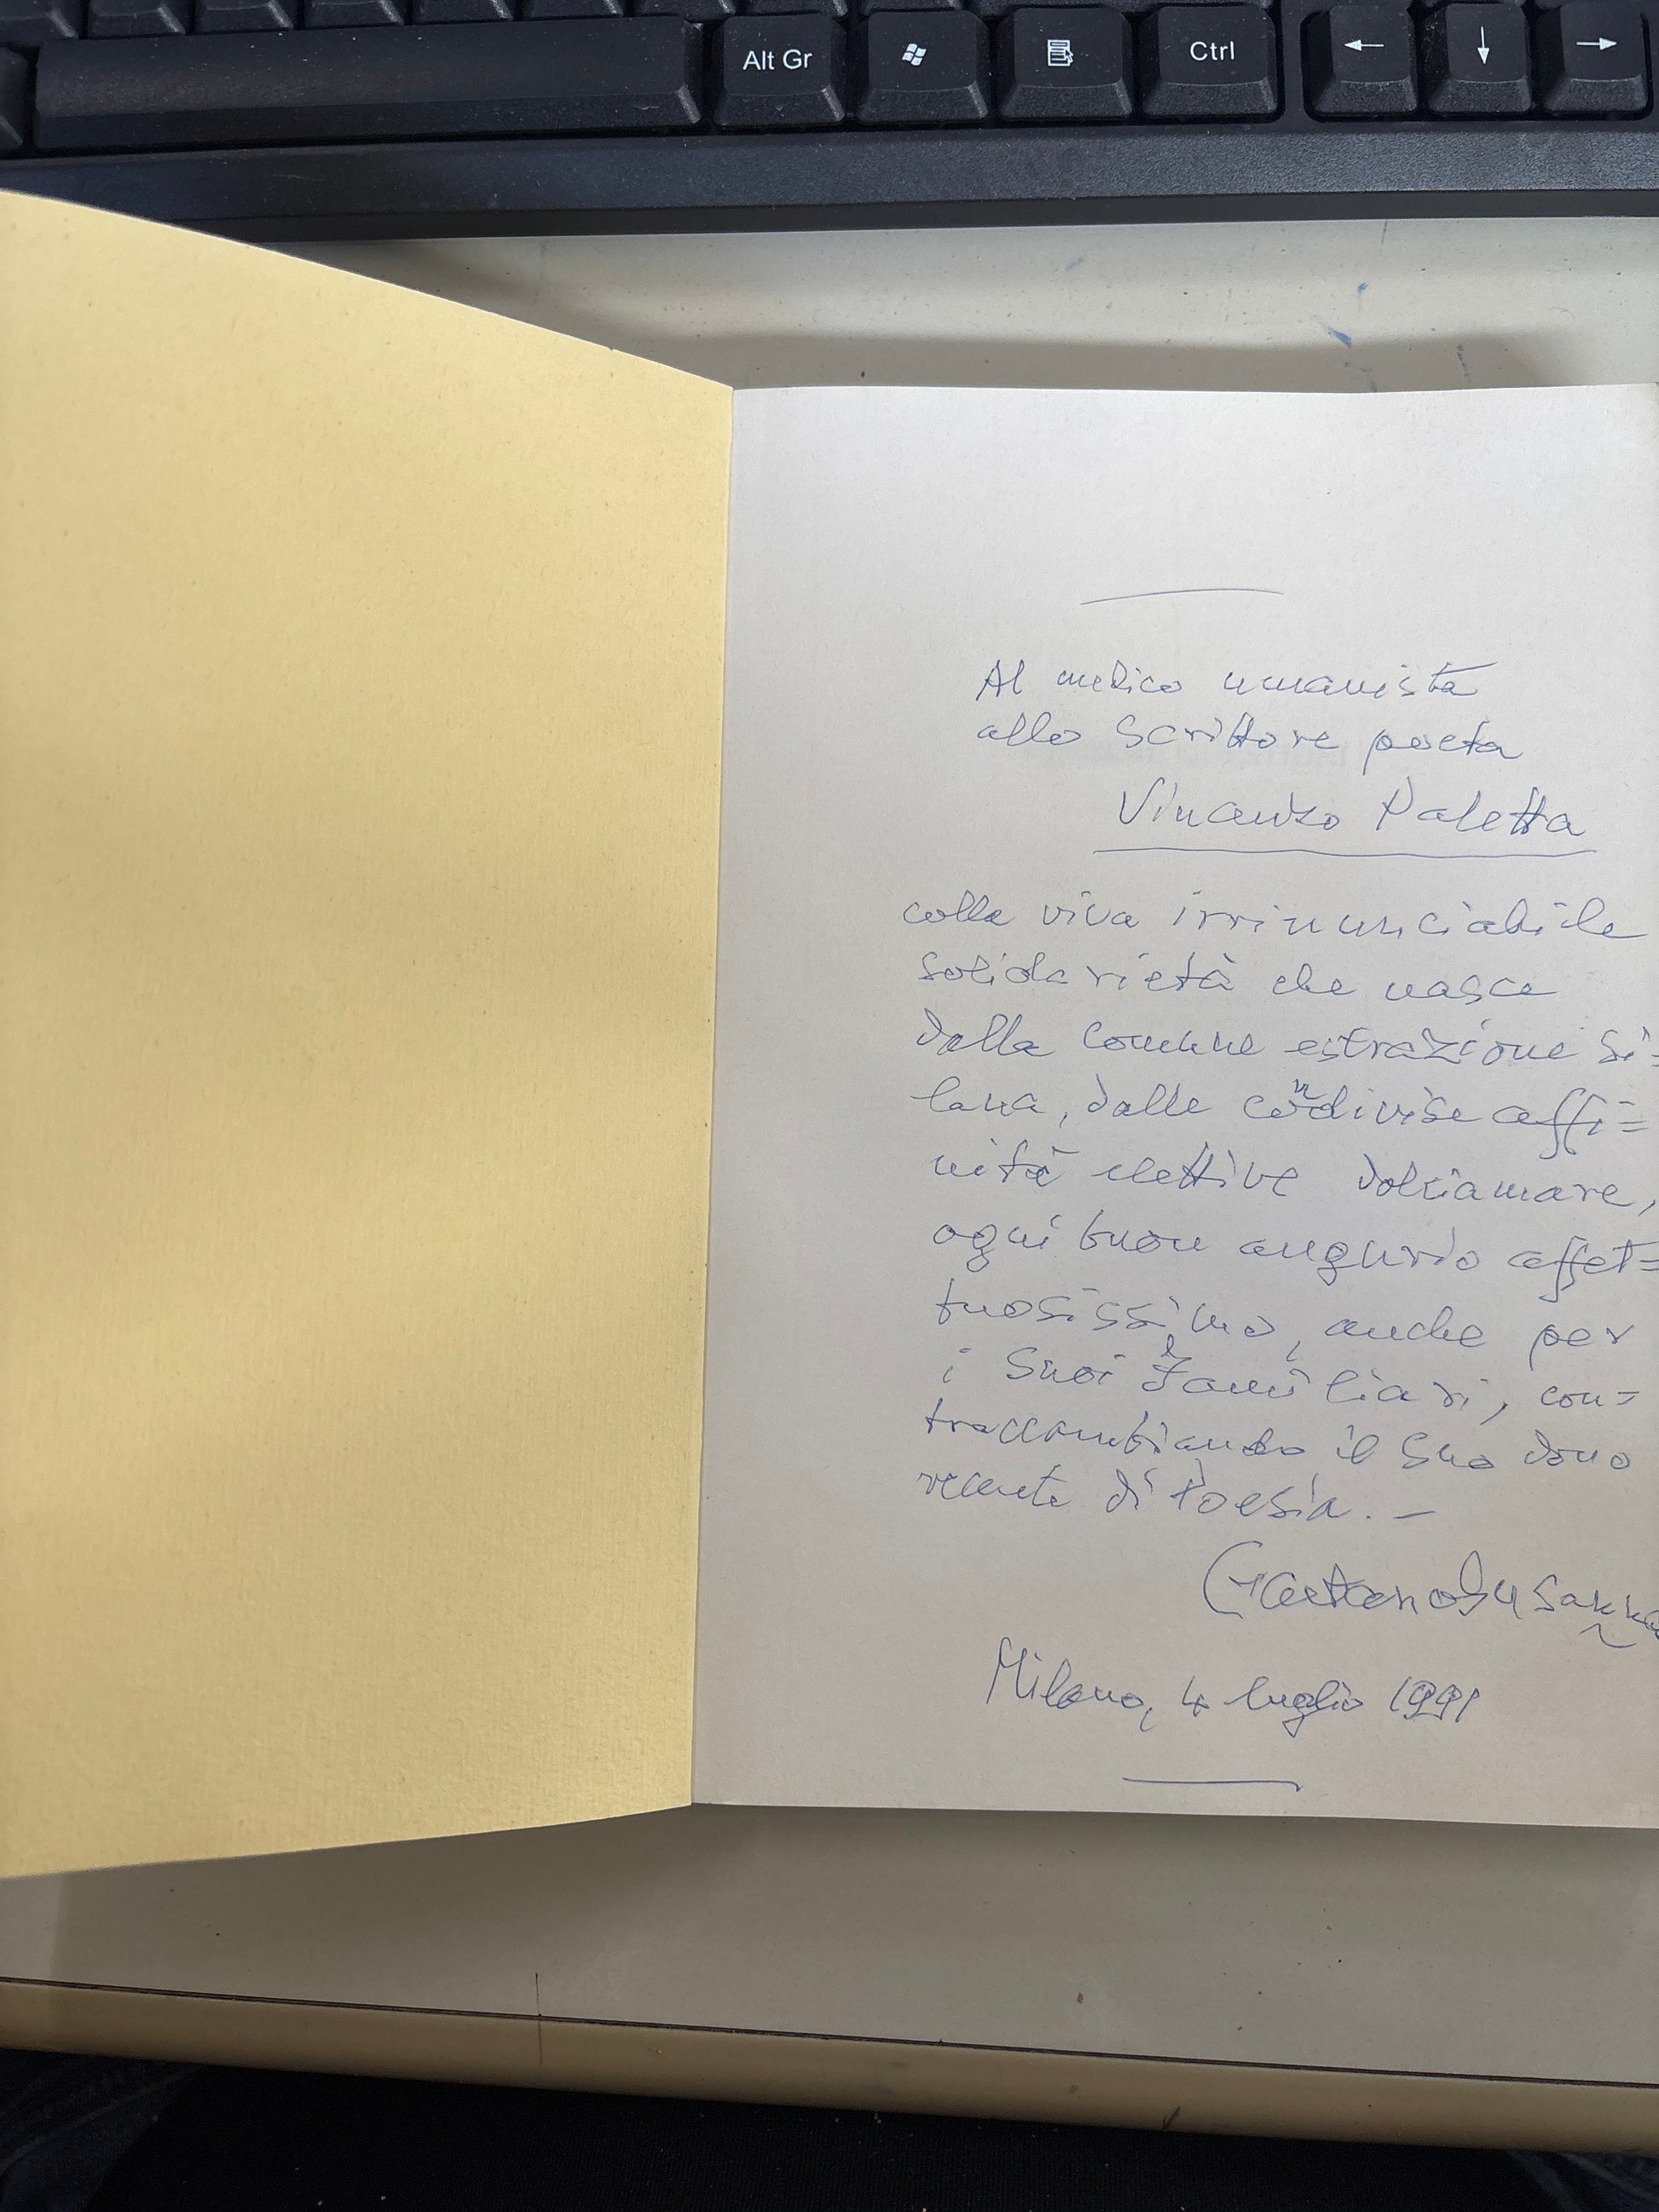 Alt Gr
Ctrl
Al medico umanista
allo Scrittore poeta
Vinanzo Paletta
colla viva irrinunciabile
solidarietà che nasce
dalla comune estrazione si=
lana, dalle condivise affi=
nità elettive dolciamare,
ogni buon augurio affet=
tuosissimo, anche per
i Suoi familiari, con=
traccambiando il Suo dono
recente di Poesia. —
Gaetano
Milano, 4 luglio 1991